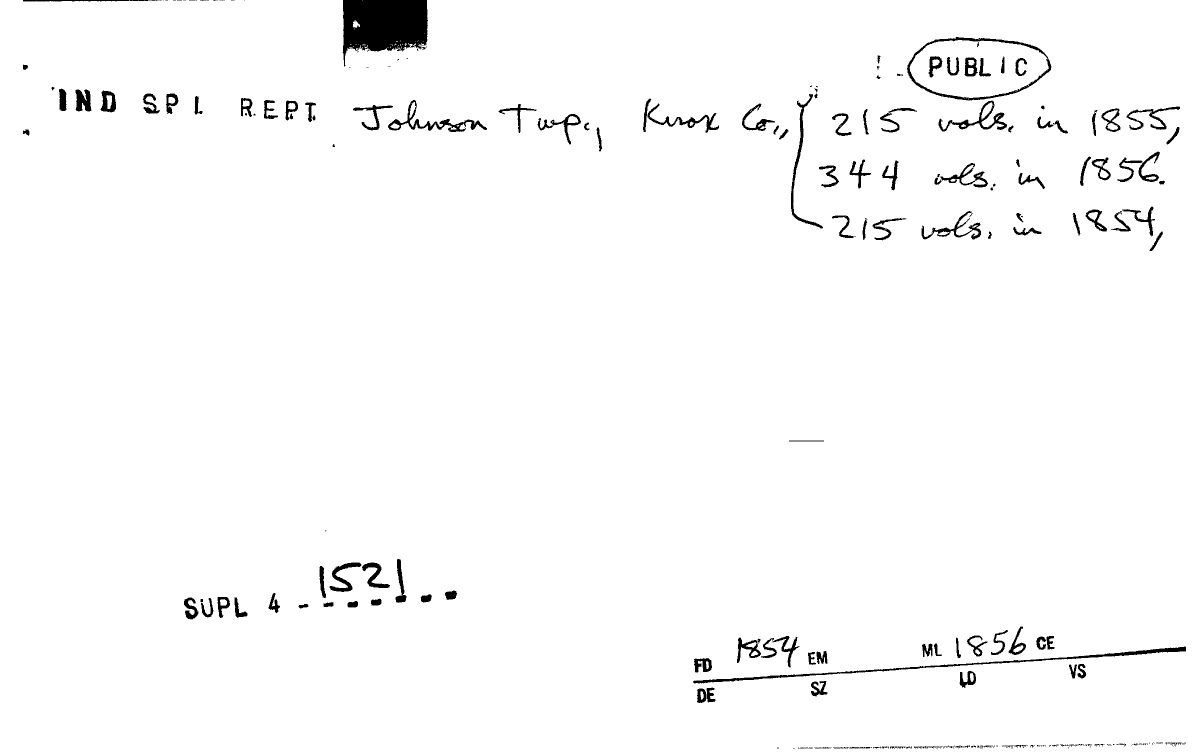 PUBLIC
IND SPL REPT Johnson Twp., Knox Co., 215 vols. in 1855,
344 vols. in 1856.
215 vols. in 1854,
SUPL 4 - 1521
FD 1854 EM ML 1856 CE
DE SZ LD VS